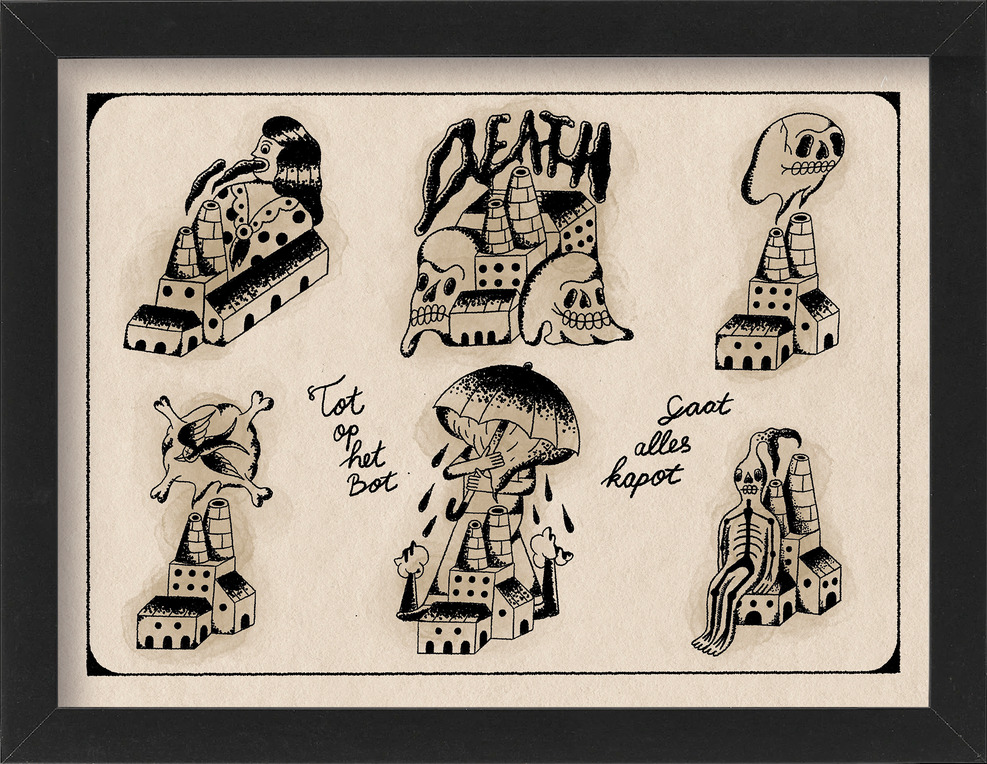 DEATH
Tot
op
het
Bot
Gaat
alles
kapot